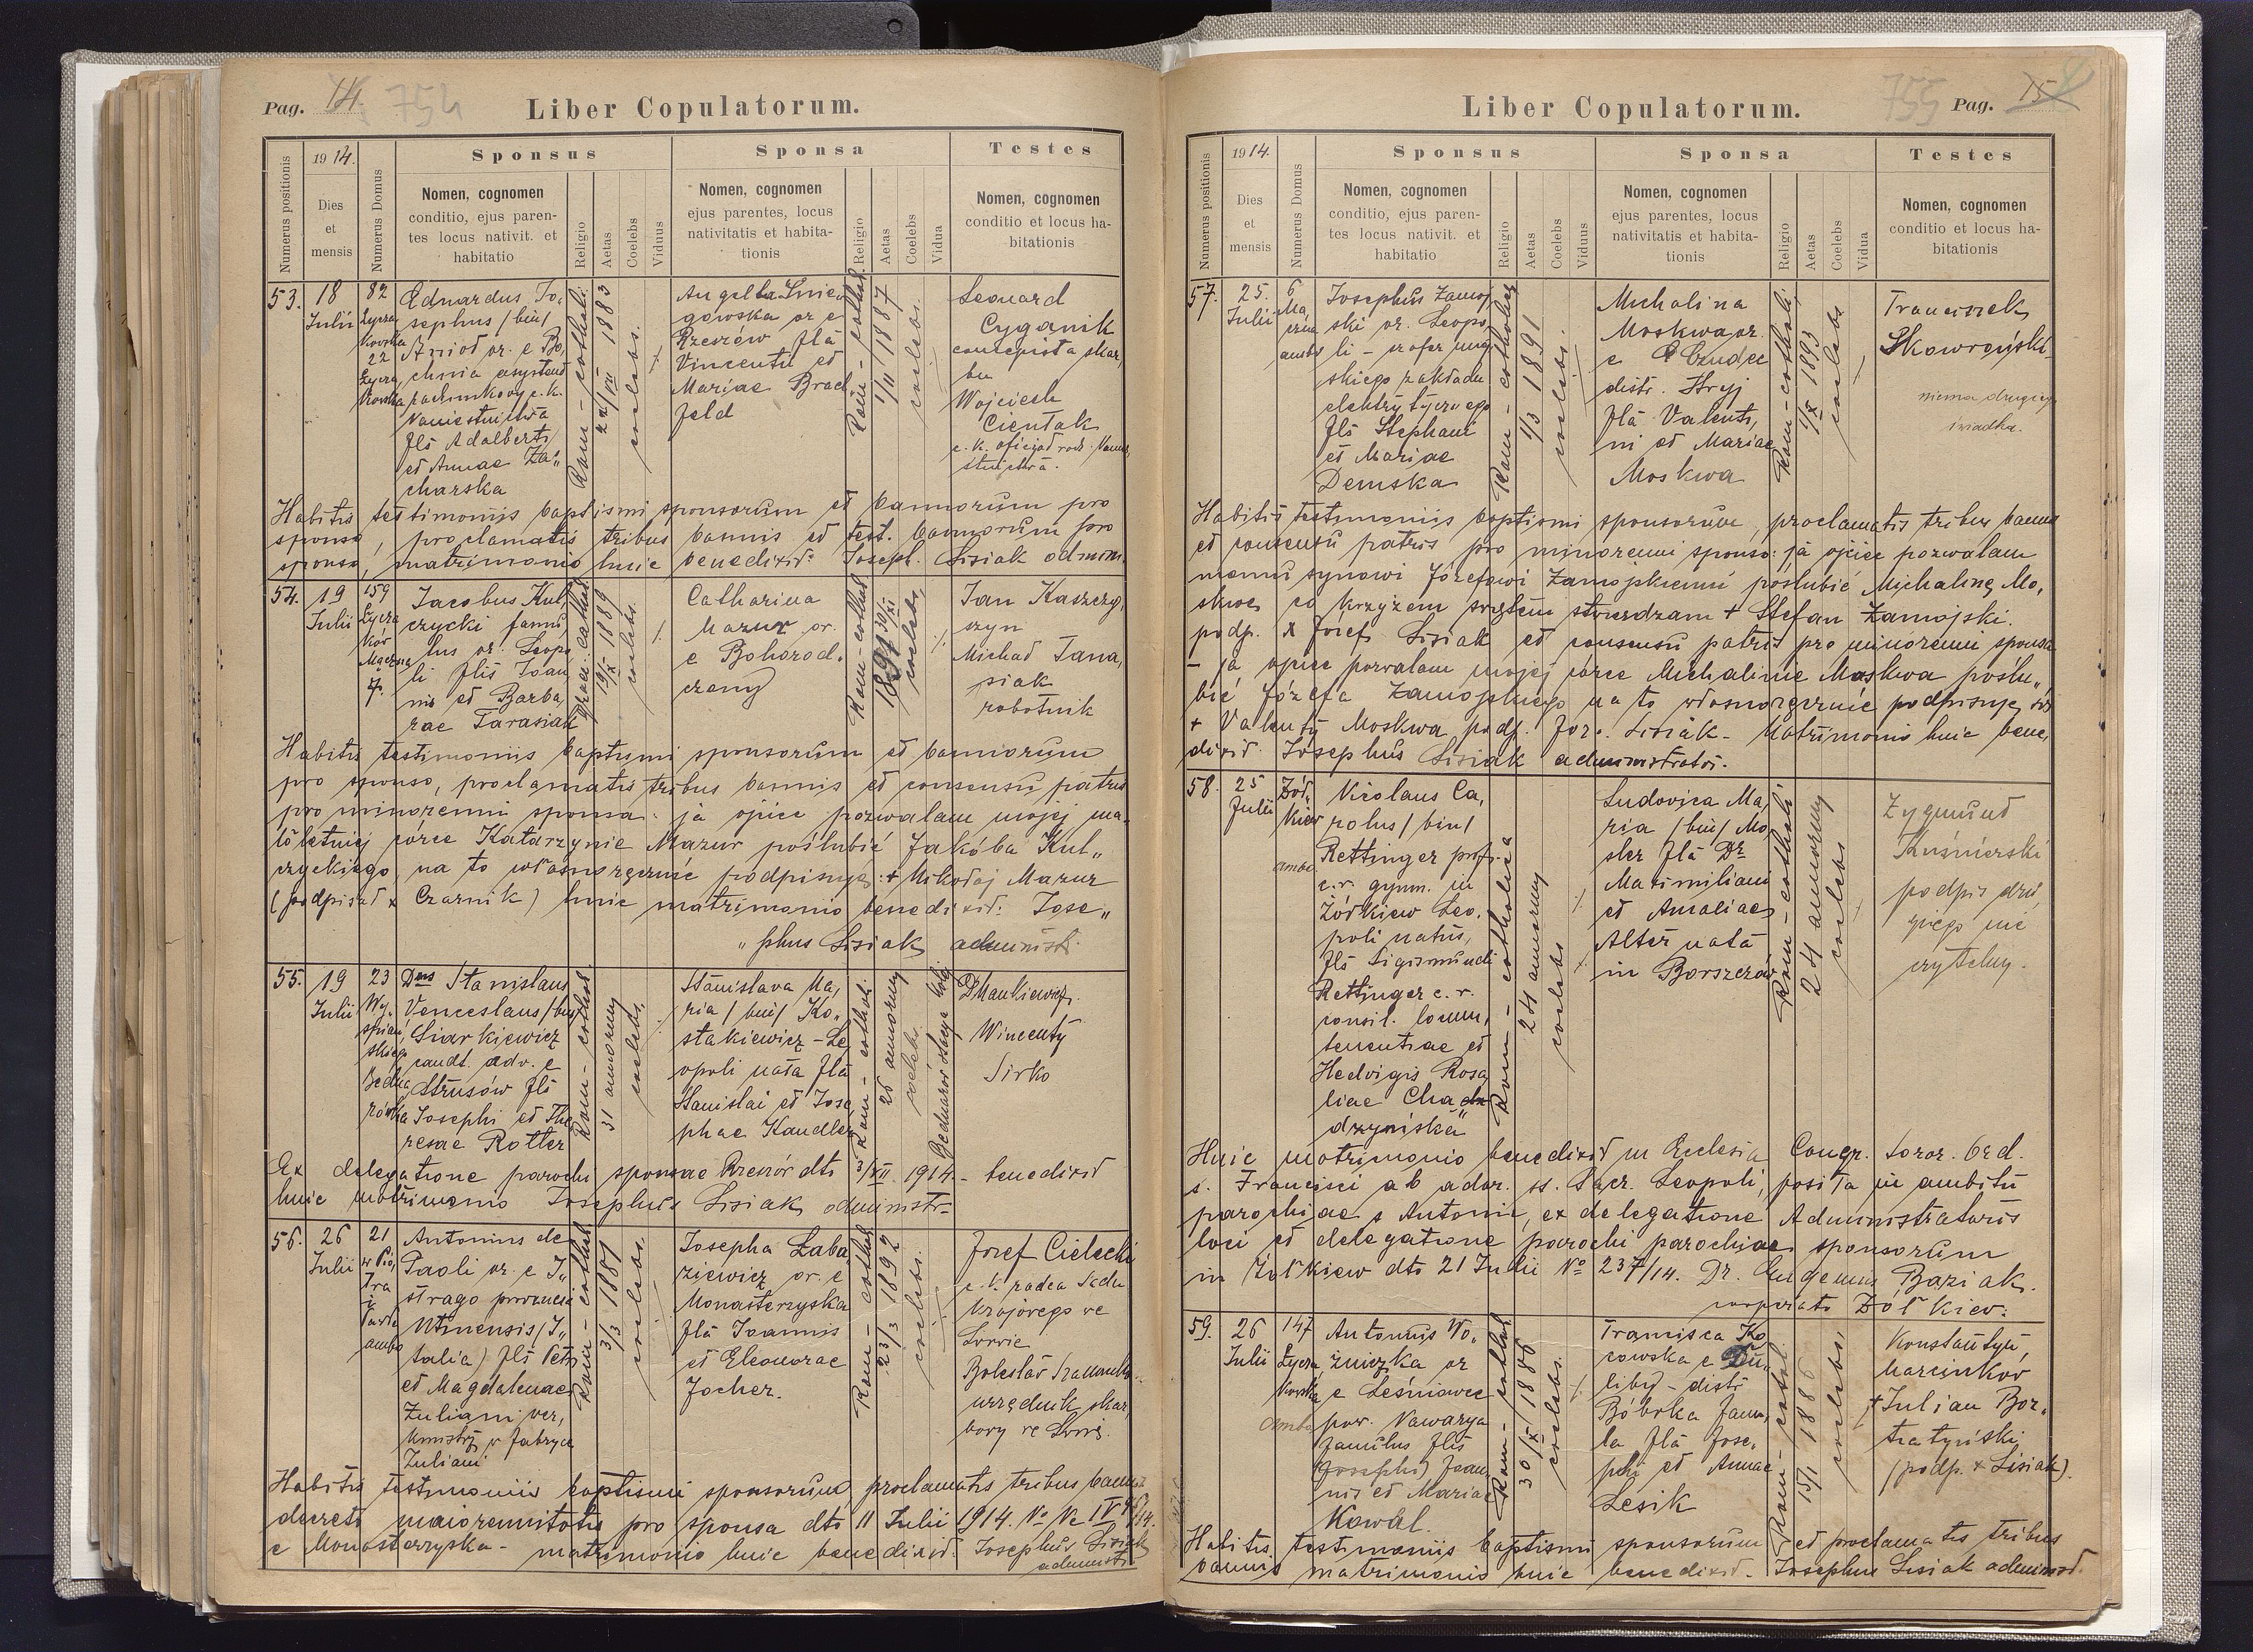 Pag. 14. 754
Liber Copulatorum.
Numerus positionis
1914.
Dies
et
mensis
Numerus Domus
Sponsus
Nomen, cognomen
conditio, ejus paren-
tes locus nativit. et
habitatio
Religio
Aetas
Coelebs
Viduus
Sponsa
Nomen, cognomen
ejus parentes, locus
nativitatis et habita-
tionis
Religio
Aetas
Coelebs
Vidua
Testes
Nomen, cognomen
conditio et locus ha-
bitationis
53.
18
Julii
82
22
Eduardus Jo,
sephus /bin/
or. e Bo,
chnia asystent
rachunkowy c.k.
Namiestnictwa
fls Adalberti
et Annae Za,,
charska
Rom-cathol.
22/VII 1883
coelebs.
Angela Snie
gowska or e
Rzeszów fla
Vincentii et
Mariae Brach
feld
Rom-cathol.
1/11 1887
coelebs.
Leonard
Cyganik
koncepista skar,
bu
Wojciech
Cientak
Habitis testimoniis baptismi sponsorum et bannorum pro
sponso, proclamatis tribus bannis et test. bannorum pro
sponsa, matrimonio huic benedixit: Joseph. Lisiak admin.
54.
19
Julii
159
Łycza
kow
7.
Jacobus Kul
czycki famu,
lus or. Leopo
li fls Joan
nis et Barba,
rae Tarasiak
19/X 1889
coelebs
Catharina
Mazur or.
e Bohorod,
czany
Rom-cathol
coelebs
Jan Kaszczy,
szyn
Michał Tana,
siak
robotnik
Habitis testimoniis baptismi sponsorum et bannorum
pro sponso, proclamatis tribus bannis et consensu patris
pro minorenni sponsa: ja ojciec pozwalam mojej ma-
łoletniej córce Katarzynie Mazur poślubić Jakóba Kul,,
czyckiego, na to własnoręcznie podpisuję: + Mikołaj Mazur
(podpisał x Czarnik) huic matrimonio benedixit: Jose,,
,,phus Lisiak administ.
55.
19
Julii
23
Wy,
spiań,
skiego
Bedna
rówka
Dns Stanislaus
Venceslaus /bin/
Siarkiewicz
candt. adv. e
Strusów fls
Josephi et The
resae Rotter
Rom-cathol.
31 annorum
coelebs.
Stanislava Ma,
ria /bin/ Ko,
stakiewicz - Le
opoli nata fla
Stanislai et Jose
phae Kandler
Rom-cathol.
26 annorum
coelebs.
Wincenty
Sirko
Ex delegatione parochi sponsae Rzeszór dto 3/VII 1914. - benedixit
huic matrimonio Josephus Lisiak administr-
56.
26
Julii
21
w Pio,
tra
i
Pawła
ambo
Antonius de
Paoli or. e J,,
strago provincia
Utinensis /I,,
talia) fls Petri
et Magdalenae
Zuliani wer,
kmistrz w fabryce
Zuliani
Rom-cathol
3/3 1881
coelebs.
Josepha Łaba
ziewicz or. e
Monasterzyska
fla Joannis
et Eleonorae
Jocher.
Rom-cathol
23/3 1892
coelebs.
Józef Cielecki
c. k. radca Sadu
krajowego we
Lwowie
Bolesław
urzędnik skar,
bowy we Lwowie.
Habitis testimoniis baptismi sponsorum, proclamatis tribus bannis
decreto maiorennitatis pro sponsa dto 11 Julii 1914. No Nc IV
e Monasterzyska - matrimonio huic benedixit. Josephus Lisiak
administr
Liber Copulatorum.
755 Pag. 15
Numerus positionis
1914.
Dies
et
mensis
Numerus Domus
Sponsus
Nomen, cognomen
conditio, ejus paren-
tes locus nativit. et
habitatio
Religio
Aetas
Coelebs
Viduus
Sponsa
Nomen, cognomen
ejus parentes, locus
nativitatis et habita-
tionis
Religio
Aetas
Coelebs
Vidua
Testes
Nomen, cognomen
conditio et locus ha-
bitationis
57.
25.
Julii
6
ambo
Josephus Zamoj
ski or. Leopo,
li -
skiego zakładu
elektrycznego
fls Stephani
et Mariae
Demska
Rom-catholica
1/3 1891
coelebs.
Michalina
Moskwa or.
e
distr. Stryj
fla Valenti,
ni et Mariae
Moskwa
Rom-cathol.
1/X 1893
coelebs
Franciszek
Skowroński
niema drugiego
świadka.
Habitis testimoniis baptismi sponsorum, proclamatis tribus bannis
et consensu patris pro minorenni sponso: ja ojciec pozwalam
memu synowi Józefowi Zamojskiemu poślubić Michalinę Mo,
skwę co krzyżem świętem stwierdzam + Stefan Zamojski.
podp. x Józef Lisiak et consensu patris pro minorenni sponsa
- ja ojciec pozwalam mojej córce Michalinie Moskwa poślu,,
bić Józefa Zamojskiego na to własnoręcznie podpisuję się
+ Valenty Moskwa podp. Józ. Lisiak - Matrimonio huic bene,
dixit. Josephus Lisiak administrator.
58.
25
Julii
Żół,
kiew
ambo
Nicolaus Ca,
rolus /bin/
Rettinger prof.
c.r. gymn. in
Żółkiew Leo,
poli natus,
fls Sigismundi
Rettinger c. r.
consil. locum,
tenentiae et
Hedvigis Rosa
liae Cha
dzyńska
Rom-catholica
24 annorum
coelebs
Ludovica Ma,
ria /bin/ Mo
sler fla Dr
Maximiliani
et Amaliae
Alter nata
in Borszczów
Rom-catholi
24 annorum
coelebs
Zygmunt
Kuśnierski
podpis dru,
giego nie
czytelny.
Huic matrimonio benedixit in Ecclesia Congr. Soror. Ord.
s. Francisci ab ador. ss. Sacr. Leopoli, posita in ambitu
parochiae s Antonii, ex delegatione Administratoris
loci et delegatione parochi parochiae sponsorum
in Żółkiew dto 21 Julii No 237/14. Dr. Eugenius Baziak.
cooperato Żółkiew.
59.
26
Julii
147
Łycza
kowska
ambo
Antonius Wo,
źniczka or
e Leśniowce
pow. Nawarya
famulus fls
(Josephi) Joan
nis et Mariae
Kowal.
Rom-cathol
30/X 1886
coelebs.
Francisca Ko
cowska e Du,
liby - distr
Bóbrka famu,
la fla Jose,
phi et Annae
Lesik
Rom-cathol.
15/1 1886
coelebs.
Konstantyn,
Marcinków
+ Julian Bor,
tratyński
(podp. x Lisiak).
Habitis testimoniis baptismi sponsorum et proclamatis tribus
bannis matrimonio huic benedixit - Josephus Lisiak administ.